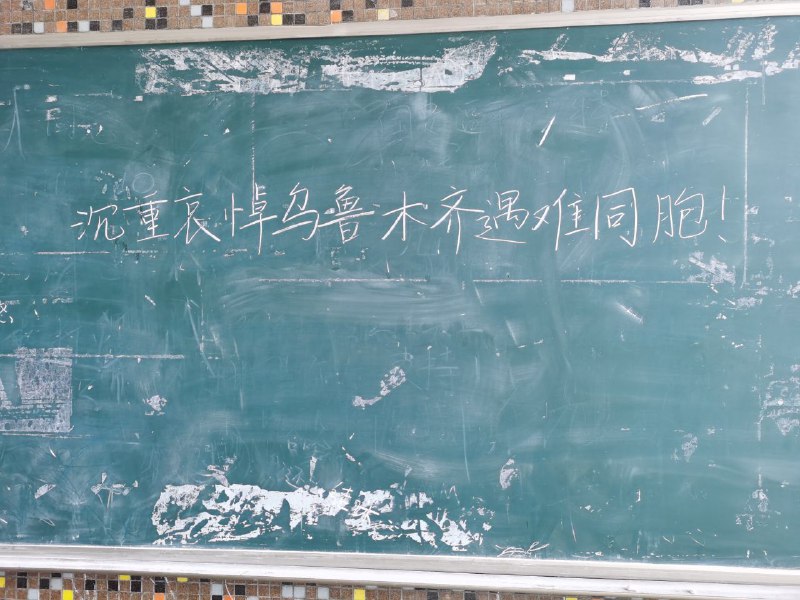 沉重哀悼乌鲁木齐遇难同胞！